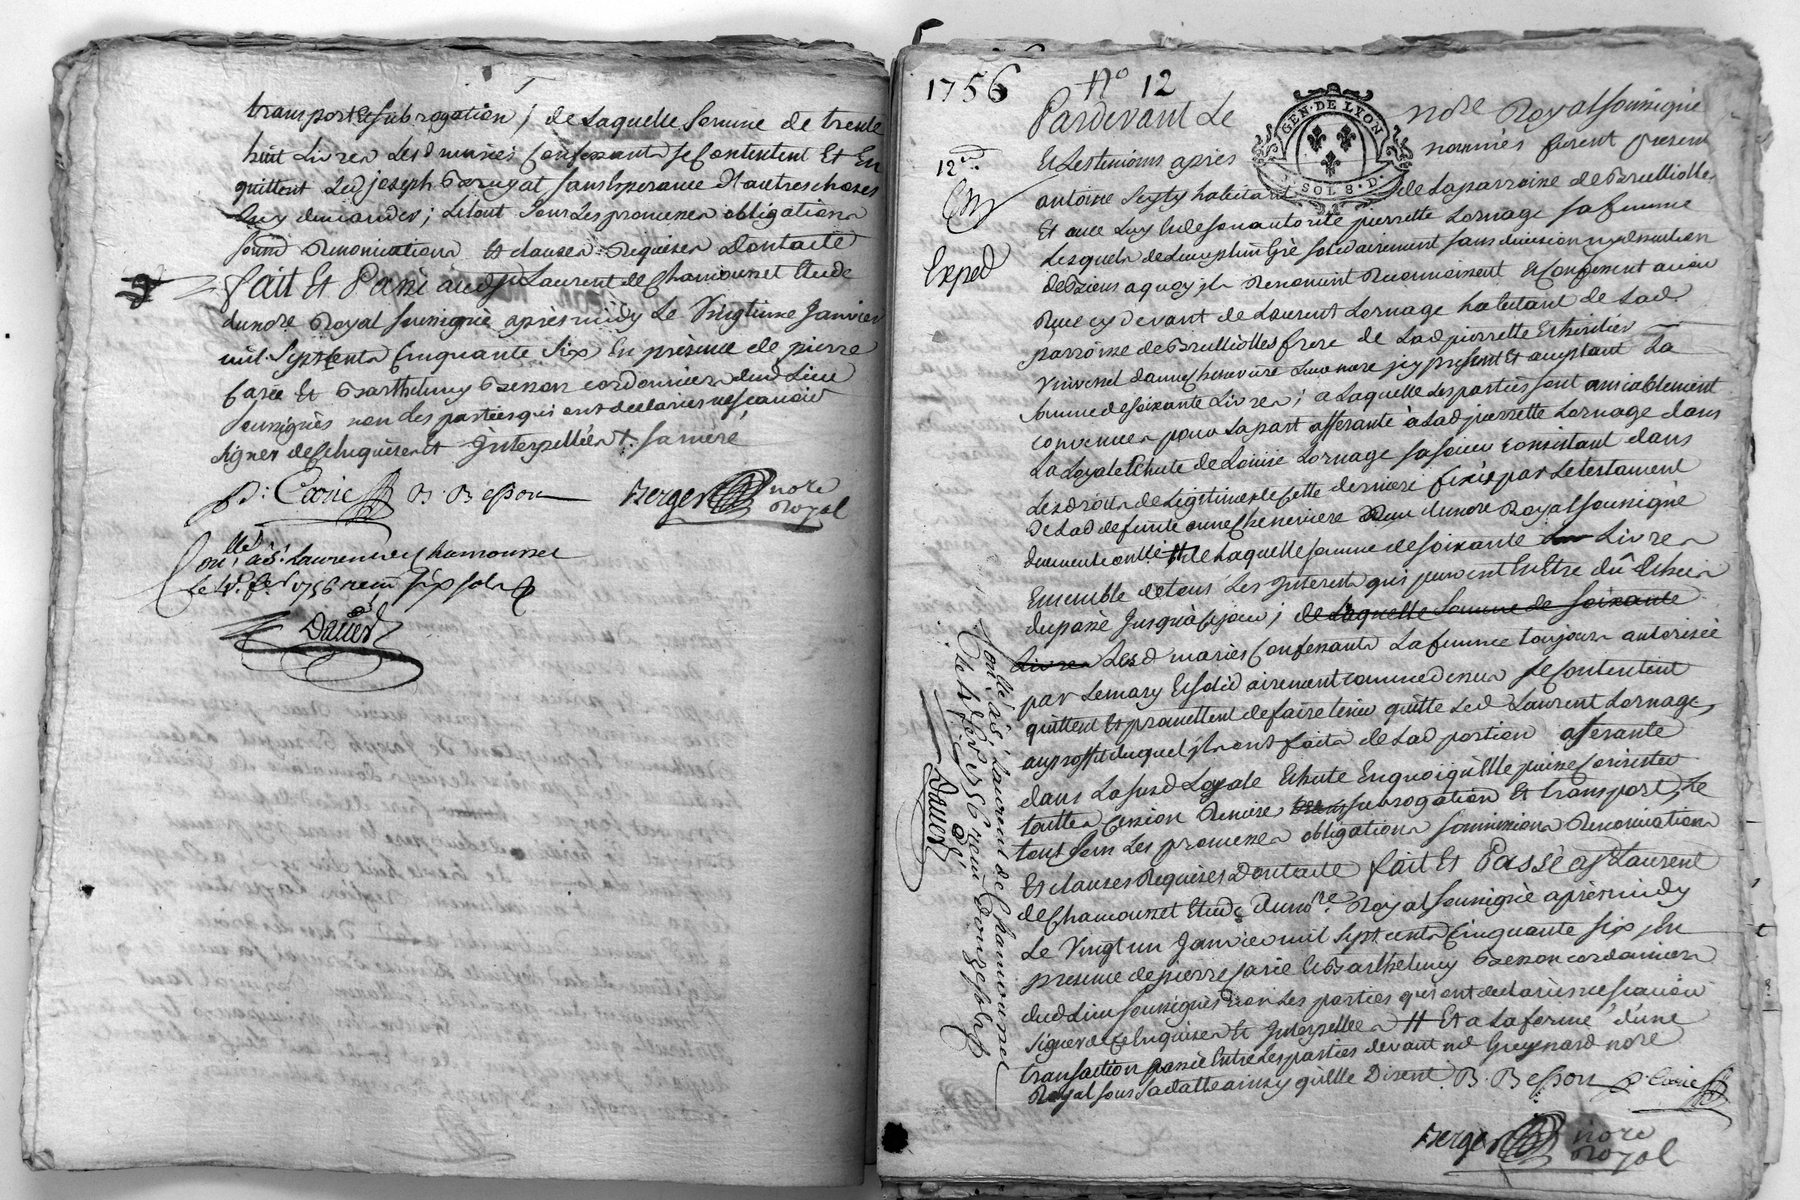 transport et subrogation / de laquelle somme de trente
huit livres lesd mariés confessants se contentent et en
quittent led joseph sans esperance d'autres choses
luy demander ; le tout sous les promesses obligations
renonciations et clauses requises dont acte
fait et Passé aud St Laurent de Chamousset Etude
du nore Royal soussigné après midy le vingtieme Janvier
mil sept cents cinquante six en présence de pierre
et Barthelemy Besson cordonniers dud lieu
soussignés non les parties qui ont declarés ne scavoir
signer de ce enquises et Interpellées
B. Besson Berger nore
Royal
Conllé à St Laurent de Chamousset
le 1756 receu six sols
Dauer
1756 No 12
Pardevant Le nore Royal soussigné
GEN. DE LYON
SOL 8. D.
Et les temoins après nommés furent presens
12e
antoine habitant de la parroisse de Brulliolles
Et avec luy et de son autorité pierrette Lornage sa femme
Exped
Lesquels de leur plein gré solidairement sans division ny discution
de biens a quoy ils renoncent reconnoissent et confessent avoir
Receu cy devant de Laurent Lornage habitant de lad
parroisse de Brulliolles frere de lad pierrette et heritier
universel d'anne cheneviere leur mere icy present et acceptant La
somme de soixante Livres ; a laquelle les parties sont amiablement
convenues pour la part afferante à lad pierrette Lornage dans
La Loyale Echute de Louise Lornage sa soeur consistant dans
Les droits de legitime de cette derniere fixés par le testament
de lad defunte anne cheneviere Receu du nore Royal soussigné
duement conllé # de laquelle somme de soixante Livres
Ensemble de tous les Interests qui peuvent en Etre dû Echeus
du passé Jusqu'à ce jour ; de laquelle somme de soixante
Livres Lesd mariés confessants La femme toujours autorisée
par Le mary Et solidairement comme dessus se contentent
quittent Et promettent de faire tenir quitte Led Laurent Lornage,
au proffit duquel ils ont fait de lad portion afferante
dans La susd Loyale Echute En quoi qu'Elle puisse consister
toutte cession remise subrogation Et transport, Le
tout sous Les promesses obligations soumissions Renonciations
Et clauses Requises Dont acte fait Et Passé a St Laurent
de Chamousset Etude du nore Royal soussigné après midy
Le Vingt un Janvier mil sept cents Cinquante six, En
presence de pierre et Barthelemy Besson cordonniers
dud Lieu soussignés non Les parties qui ont declarés ne scavoir
signer de ce Enquises Et Interpellées # Et a La forme d'une
transaction passée Entre Les parties devant me Greynard nore
Royal sous sa datte ainsy qu'elle Disent B. Besson
Berger nore
Royal
Conllé à St Laurent de Chamousset
le 1756 receu douze sols
Dauer